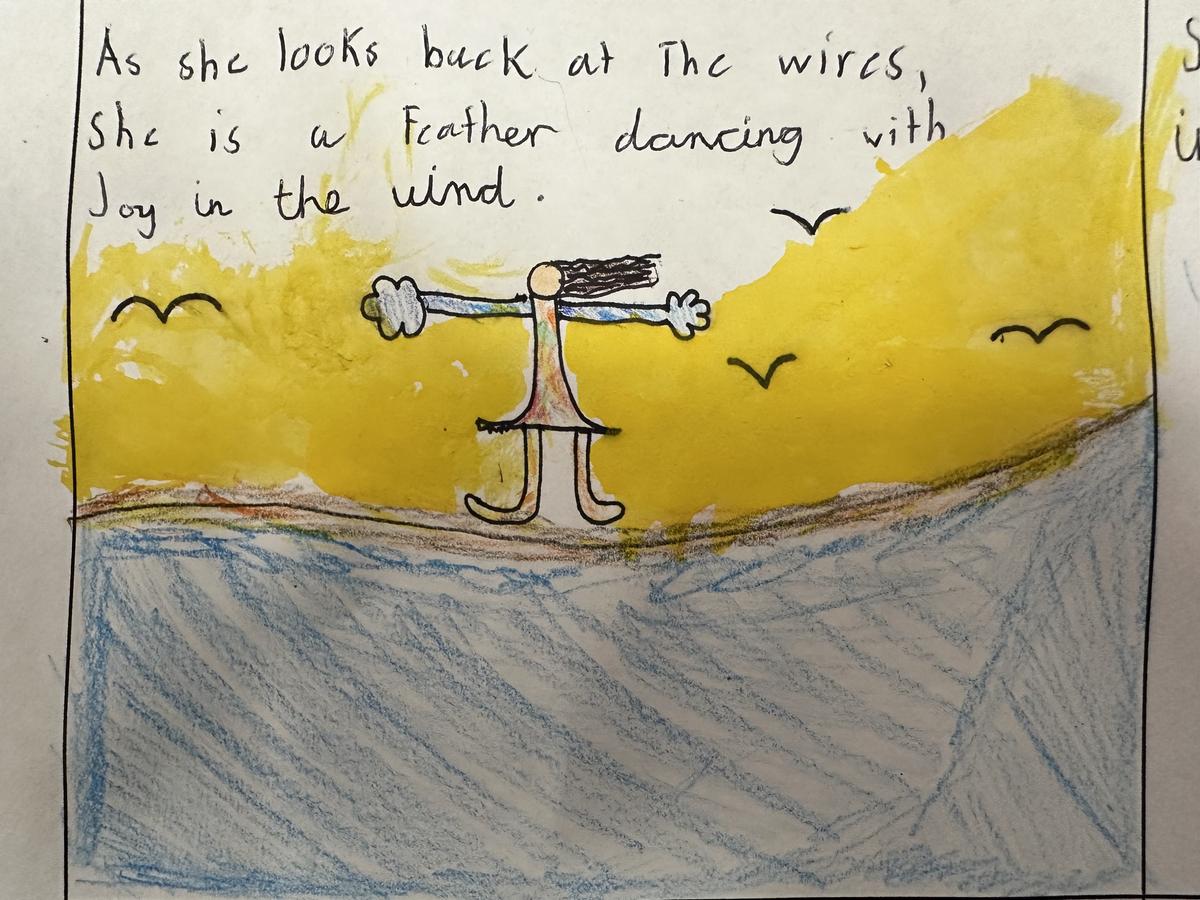 As she looks back at The wires,
She is a Feather dancing with
Joy in the wind.